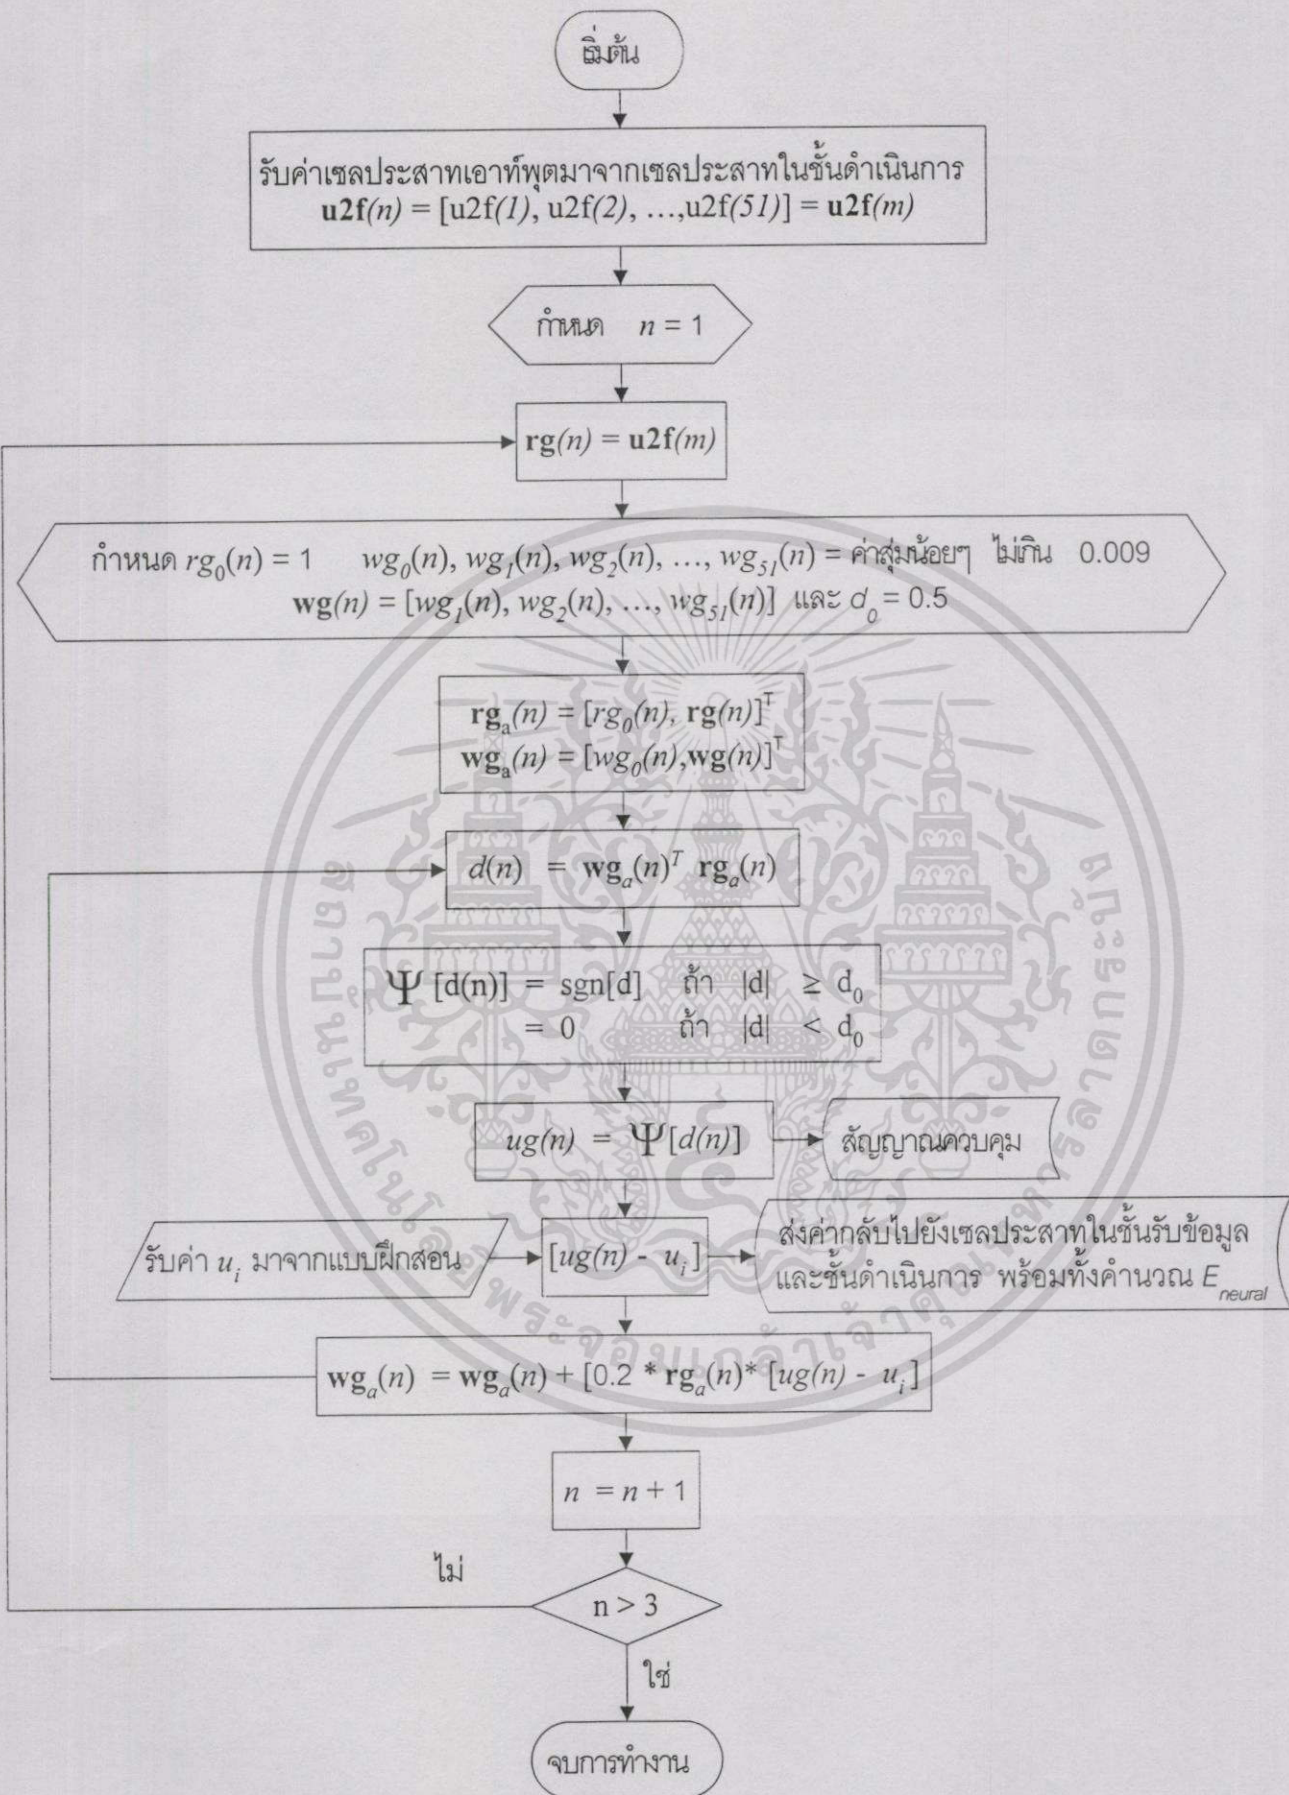 เริ่มต้น
รับค่าเซลประสาทเอาท์พุตมาจากเซลประสาทในชั้นดำเนินการ
u2f(n) = [u2f(1), u2f(2), ...,u2f(51)] = u2f(m)
กำหนด n = 1
rg(n) = u2f(m)
กำหนด rg₀(n) = 1 wg₀(n), wg₁(n), wg₂(n), ..., wg₅₁(n) = ค่าสุ่มน้อยๆ ไม่เกิน 0.009
wg(n) = [wg₁(n), wg₂(n), ..., wg₅₁(n)] และ d₀ = 0.5
rgₐ(n) = [rg₀(n), rg(n)]ᵀ
wgₐ(n) = [wg₀(n),wg(n)]ᵀ
d(n) = wgₐ(n)ᵀ rgₐ(n)
Ψ [d(n)] = sgn[d] ถ้า |d| ≥ d₀
= 0 ถ้า |d| < d₀
ug(n) = Ψ[d(n)]
สัญญาณควบคุม
รับค่า uᵢ มาจากแบบฝึกสอน
[ug(n) - uᵢ]
ส่งค่ากลับไปยังเซลประสาทในชั้นรับข้อมูล
และชั้นดำเนินการ พร้อมทั้งคำนวณ E_neural
wgₐ(n) = wgₐ(n) + [0.2 * rgₐ(n)* [ug(n) - uᵢ]
n = n + 1
ไม่
n > 3
ใช่
จบการทำงาน
สถาบันเทคโนโลยีพระจอมเกล้าเจ้าคุณทหารลาดกระบัง